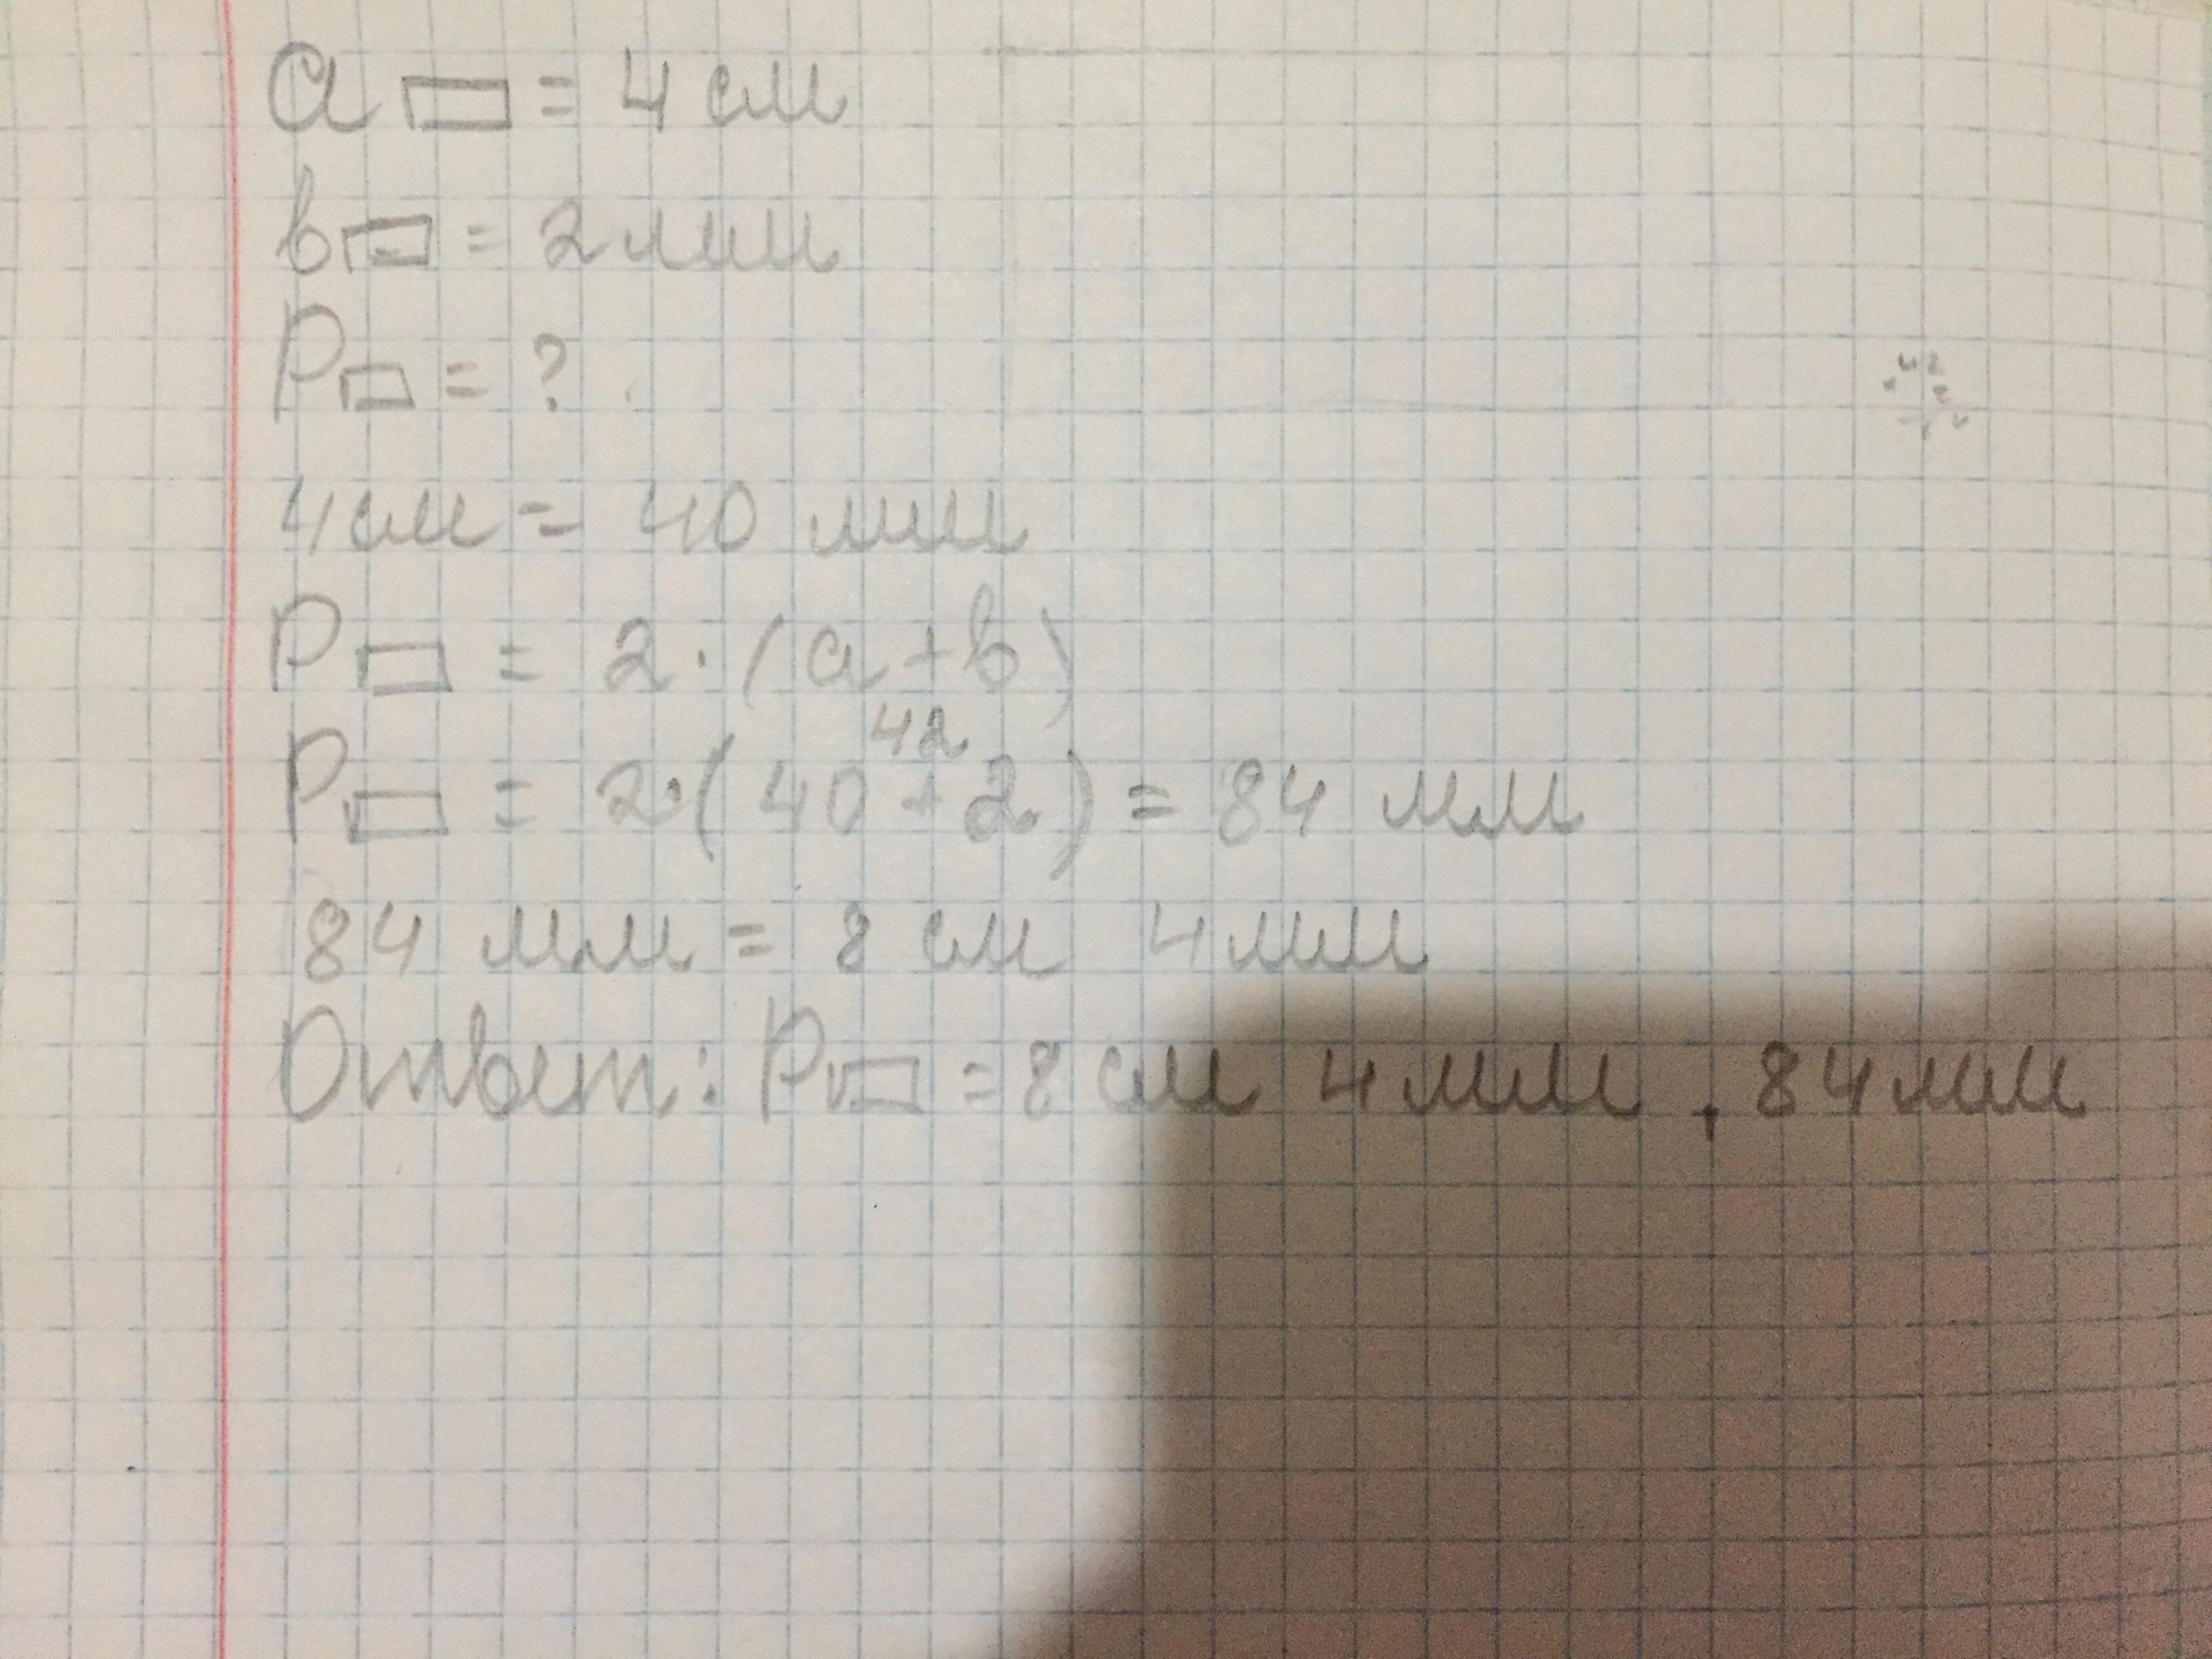 a▭ = 4 см
b▭ = 2 мм
P▭ = ?
4 см = 40 мм
P▭ = 2 · (a + b)
42
P▭ = 2 · (40 + 2) = 84 мм
84 мм = 8 см 4 мм
Ответ: P▭ = 8 см 4 мм , 84 мм